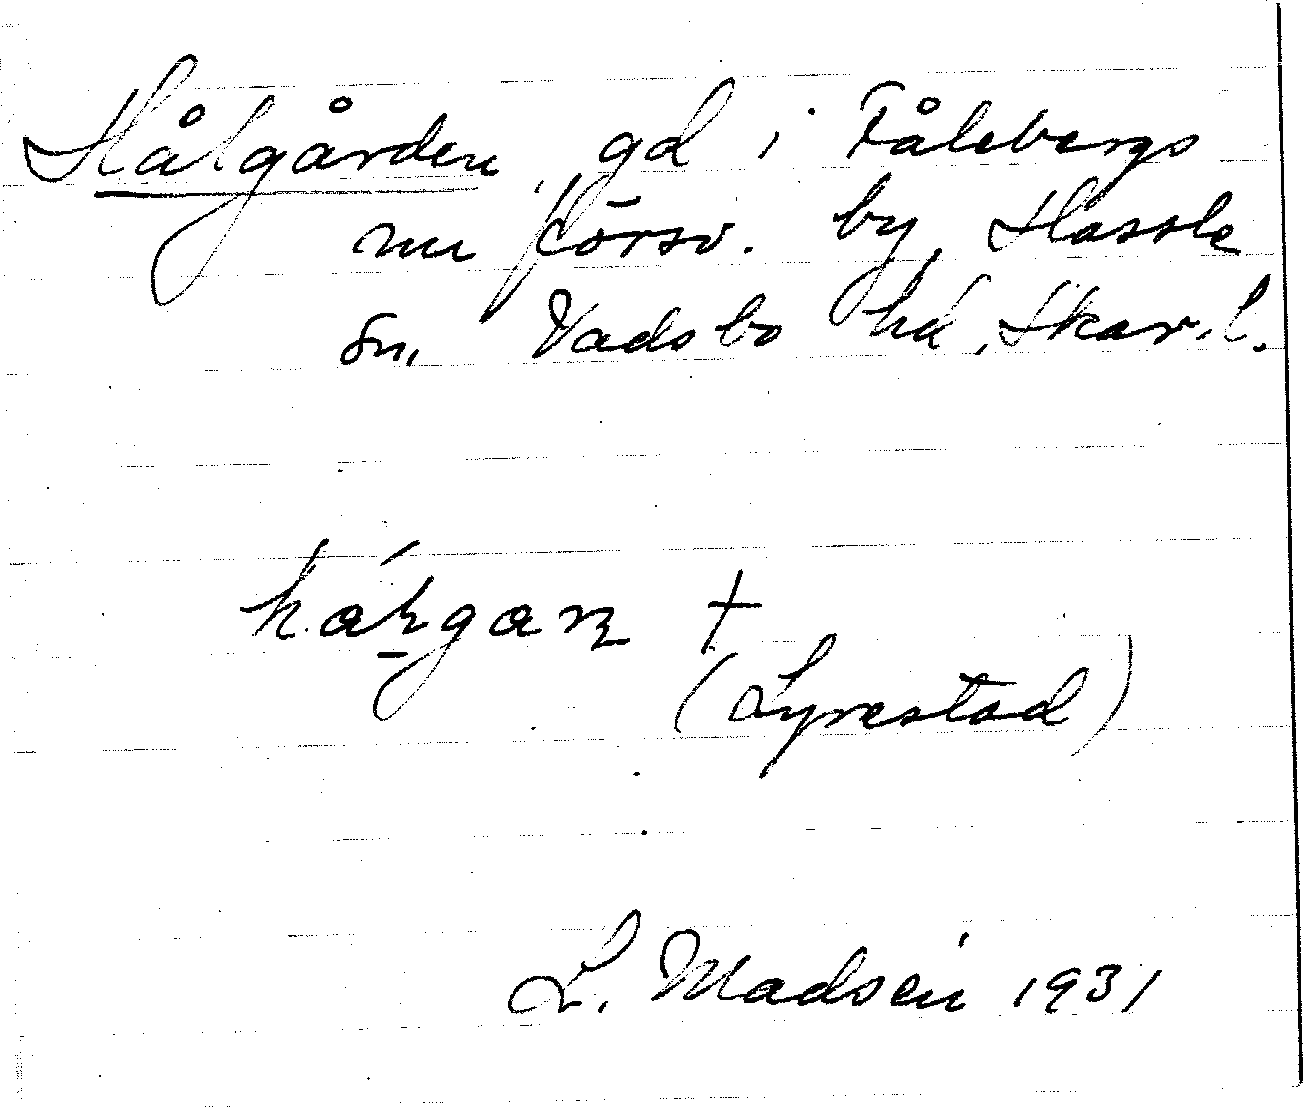 Hålgården gd i Fålebergs
nu försv. by, Hassle
sn, Vadsbo hd, Skar. l.
+
(Lyrestad)
L. Madsén 1931